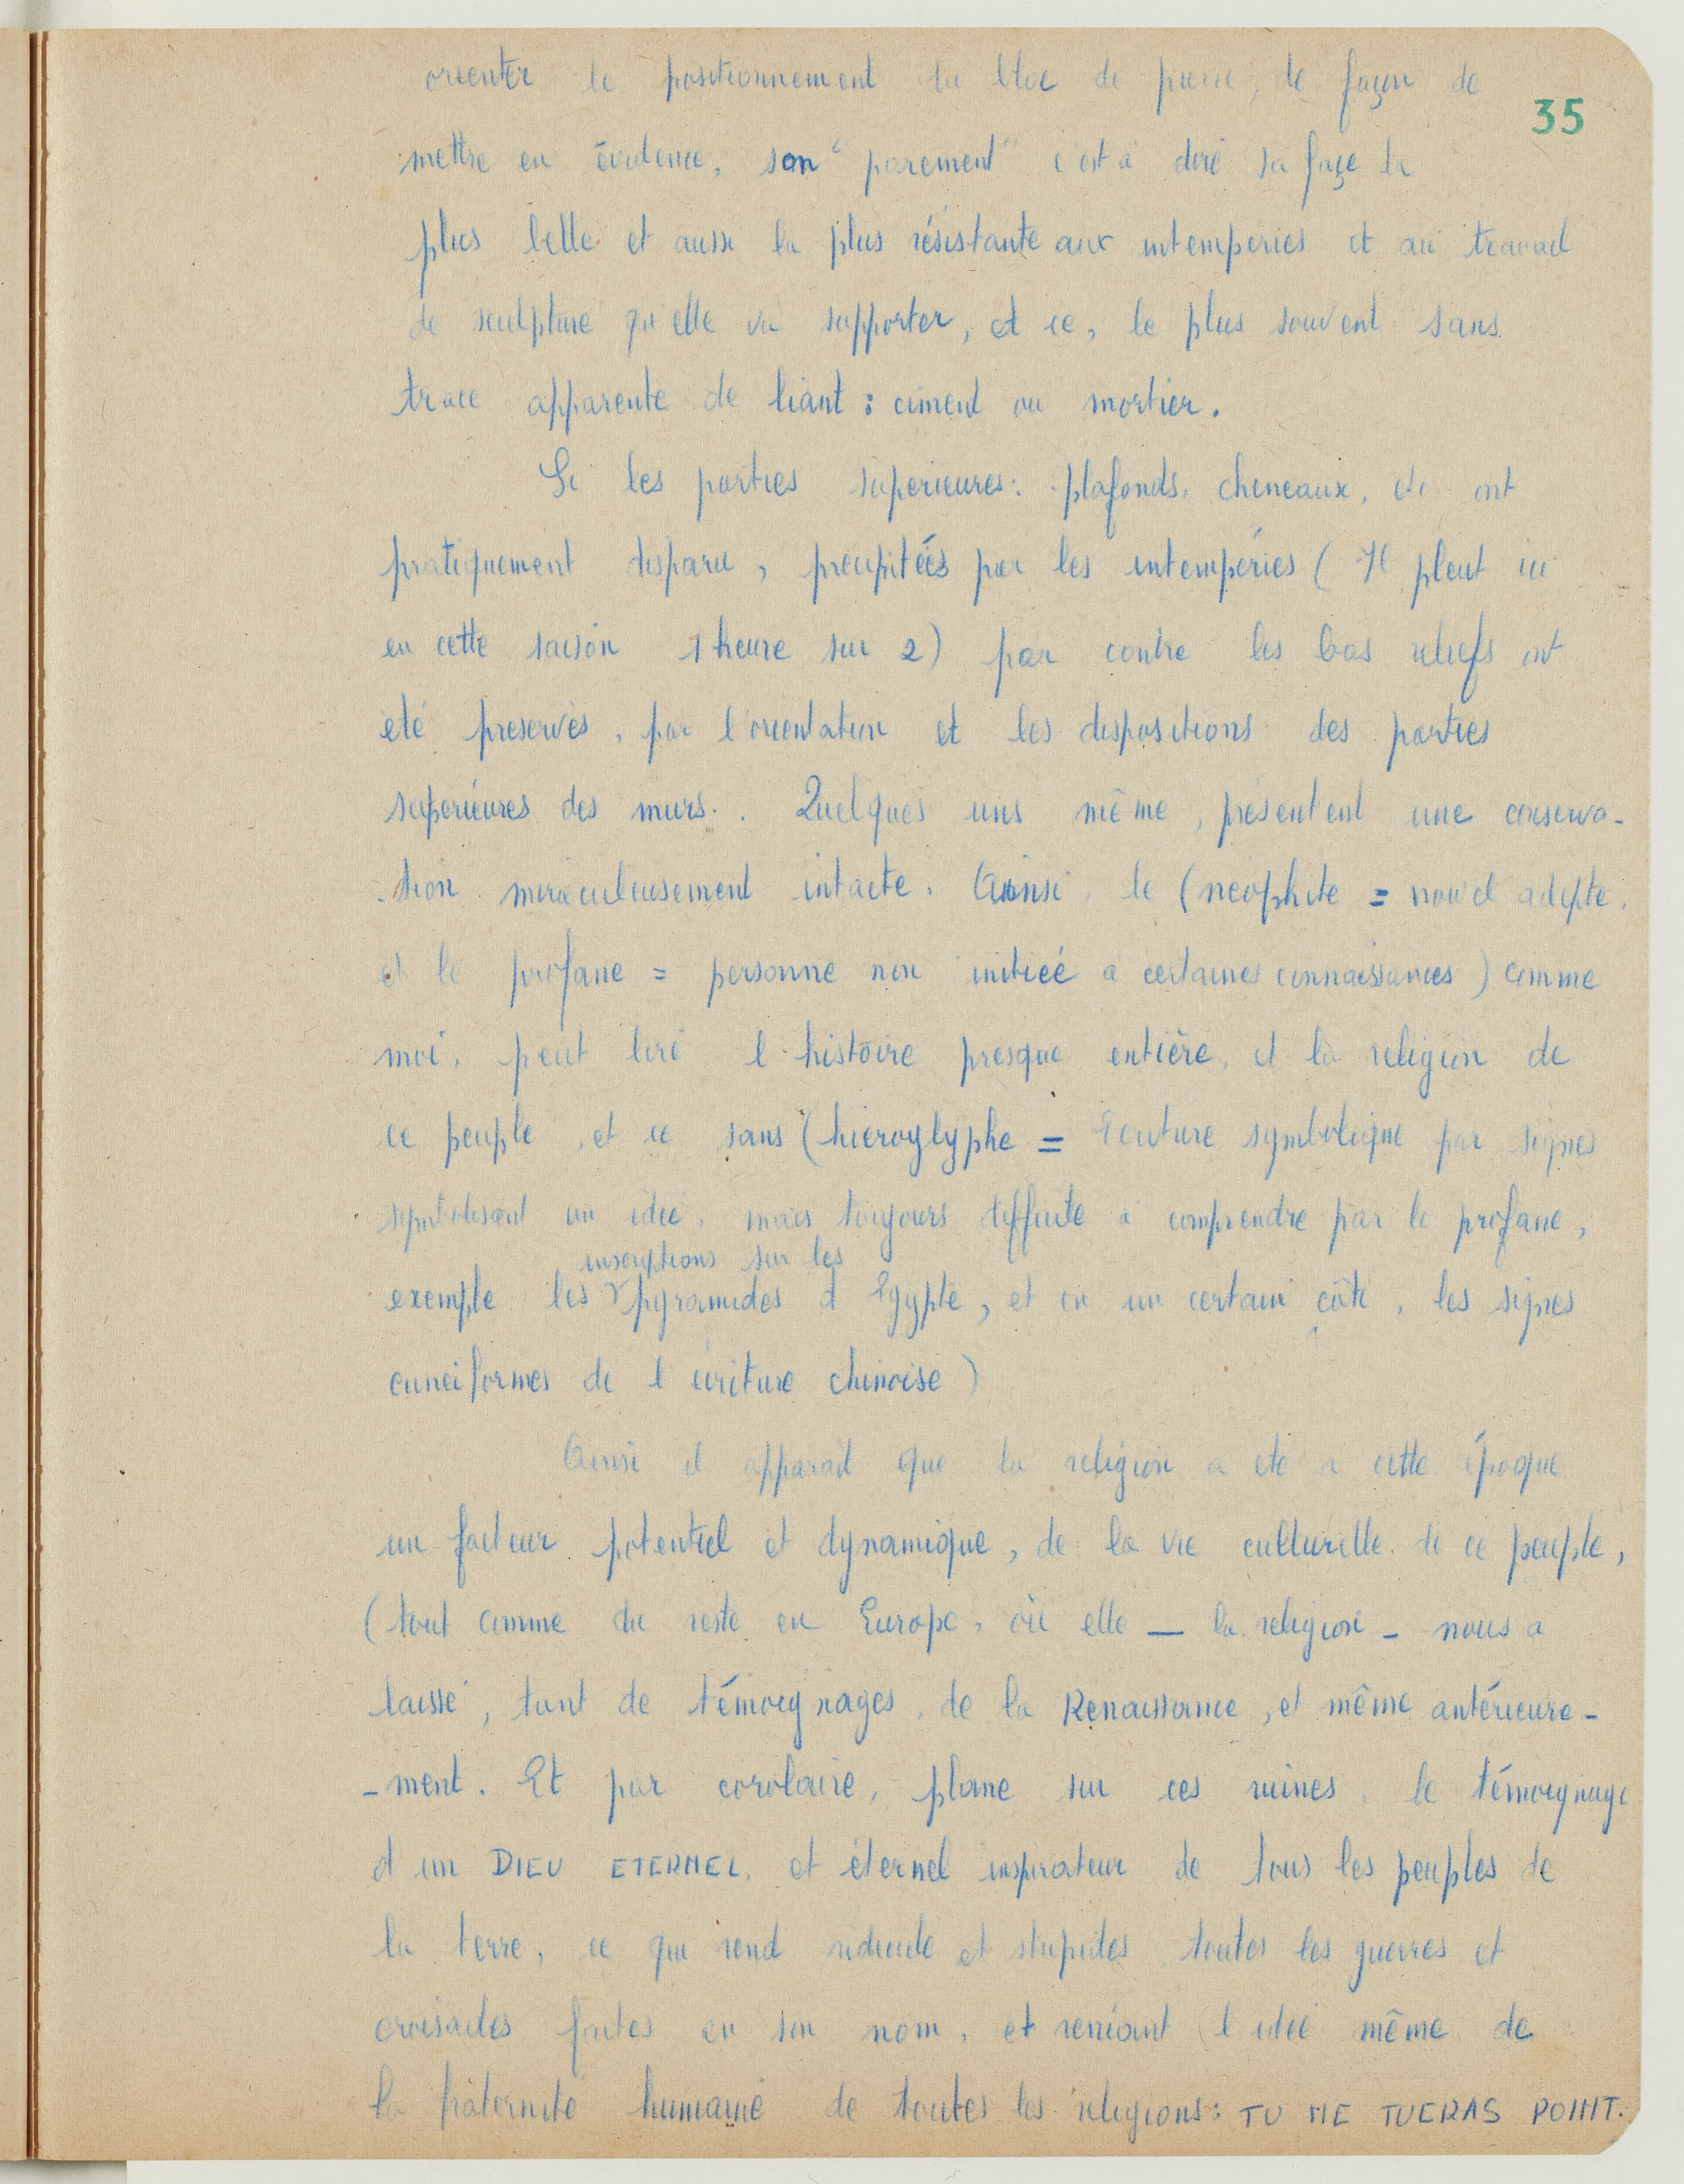 35
orienter le positionnement du bloc de pierre, de façon de
mettre en évidence, son "parement" c'est à dire sa façe la
plus belle et aussi la plus résistante aux intemperies et au travail
de sculpture qu'elle va supporter, et ce, le plus souvent sans
trace apparente de liant : ciment ou mortier.
Si les parties superieures: plafonds, cheneaux, etc ont
pratiquement disparu, precipitées par les intempéries ( Il pleut ici
en cette saison 1 heure sur 2) par contre les bas reliefs ont
été preservés, par l'orientation et les dispositions des parties
supérieures des murs. Quelques uns même, présentent une conserva-
-tion miraculeusement intacte. Ainsi le (neophite = nouvel adepte,
et le profane = personne non initiéé a certaines connaissances) comme
moi, peut lire l'histoire presque entière, et la religion de
ce peuple, et ce sans (hieroglyphe = Ecriture symbolique par signes
symbolisant un idée, mais toujours difficile a comprendre par le profane,
inscriptions sur les
exemple les pyramides d Egypte, et en un certain côté, les signes
cuneiformes de l ecriture chinoise)
Ainsi il apparait que la religion a eté a cette époque
un facteur potentiel et dynamique, de la vie culturelle de ce peuple,
(tout comme du reste en Europe, où elle _ la religion - nous a
laissé, tant de témoignages, de la Renaissance, et même antérieure-
-ment. Et par corolaire, plane sur ces ruines, le témoignage
d un DIEU ETERNEL, et éternel inspirateur de tous les peuples de
la terre, ce qui rend ridicule et stupides toutes les guerres et
croisades faites en son nom, et reniant l idée même de
la fraternité humaine de toutes les religions: TU NE TUERAS POINT.